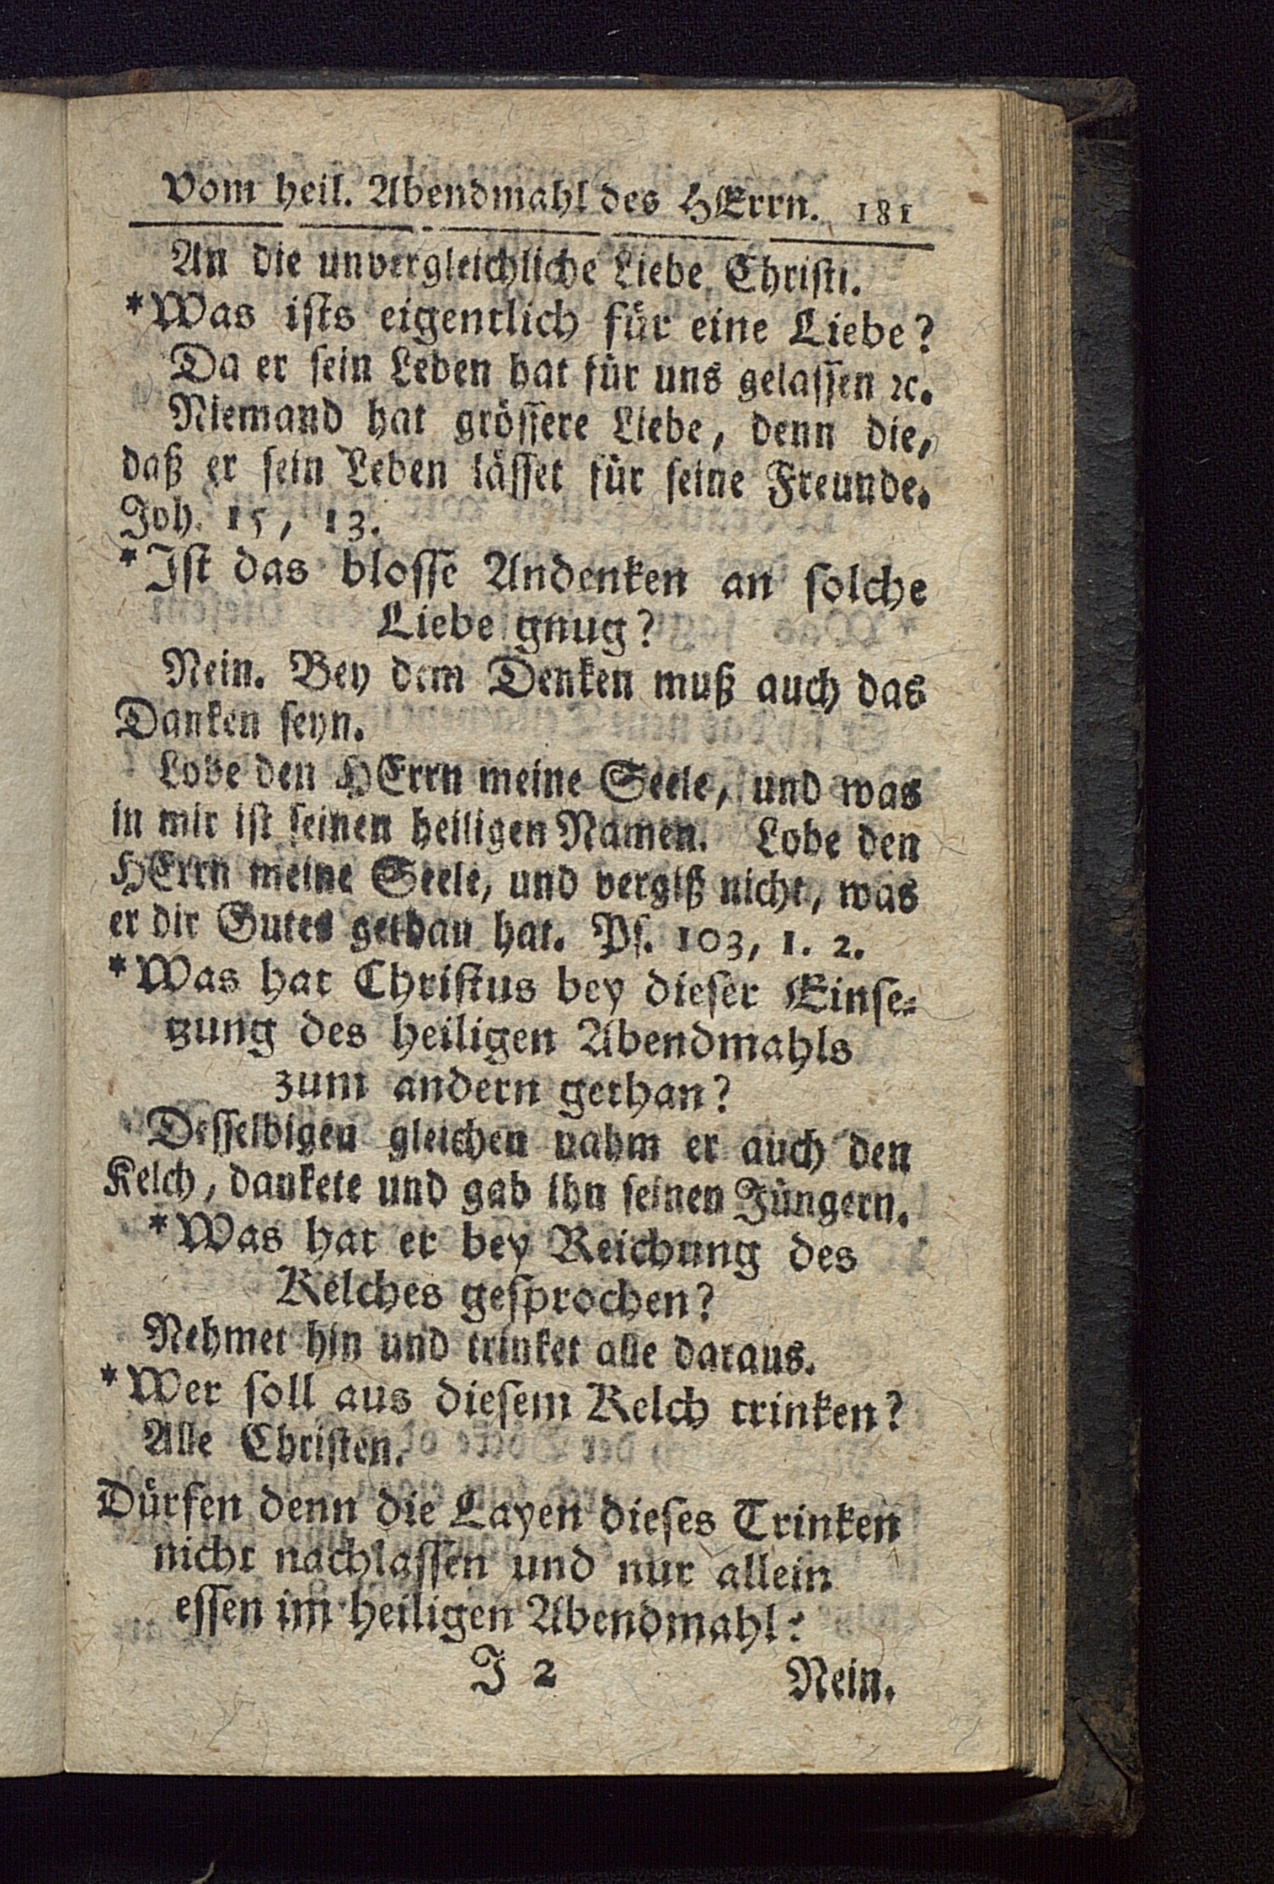 Vom heil. Abendmahl des HErrn. 181
An die unvergleichliche Liebe Christi.
*Was ists eigentlich für eine Liebe?
Da er sein Leben hat für uns gelassen ꝛc.
Niemand hat grössere Liebe, denn die,
daß er sein Leben lässet für seine Freunde.
Joh. 15, 13.
*Ist das blosse Andenken an solche
Liebe gnug?
Nein. Bey dem Denken muß auch das
Danken seyn.
Lobe den HErrn meine Seele, und was
in mir ist seinen heiligen Namen. Lobe den
HErrn meine Seele, und vergiß nicht, was
er dir Gutes gethan hat. Ps. 103, 1. 2.
*Was hat Christus bey dieser Einse-
tzung des heiligen Abendmahls
zum andern gethan?
Desselbigen gleichen nahm er auch den
Kelch, dankete und gab ihn seinen Jüngern.
*Was hat er bey Reichung des
Kelches gesprochen?
Nehmet hin und trinket alle daraus.
*Wer soll aus diesem Kelch trinken?
Alle Christen.
Dürfen denn die Layen dieses Trinken
nicht nachlassen und nur allein
essen im heiligen Abendmahl?
J 2 Nein.